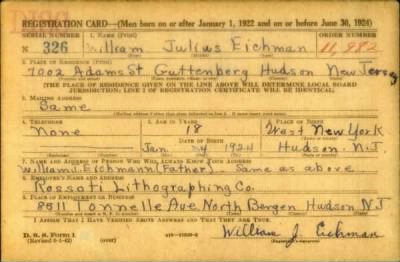 REGISTRATION CARD—(Men born on or after January 1, 1922 and on or before June 30, 1924)
SERIAL NUMBER
1. NAME (Print)
ORDER NUMBER
N 326
William Julius Eichman
11,982
2. PLACE OF RESIDENCE (Print)
7002 Adams St Guttenberg Hudson New Jersey
[THE PLACE OF RESIDENCE GIVEN ON THE LINE ABOVE WILL DETERMINE LOCAL BOARD
JURISDICTION; LINE 2 OF REGISTRATION CERTIFICATE WILL BE IDENTICAL]
3. MAILING ADDRESS
Same
4. TELEPHONE
5. AGE IN YEARS
None
18
West New York
DATE OF BIRTH
Jan 1924
Hudson. N.J.
7. NAME AND ADDRESS OF PERSON WHO WILL ALWAYS KNOW YOUR ADDRESS
William J. Eichmann (Father). Same as above
8. EMPLOYER'S NAME AND ADDRESS
Rossoti Lithographing Co.
9. PLACE OF EMPLOYMENT OR BUSINESS
8511 Tonnelle Ave North Bergen Hudson NJ
I AFFIRM THAT I HAVE VERIFIED ABOVE ANSWERS AND THAT THEY ARE TRUE.
D. S. S. Form 1
William J. Eichman